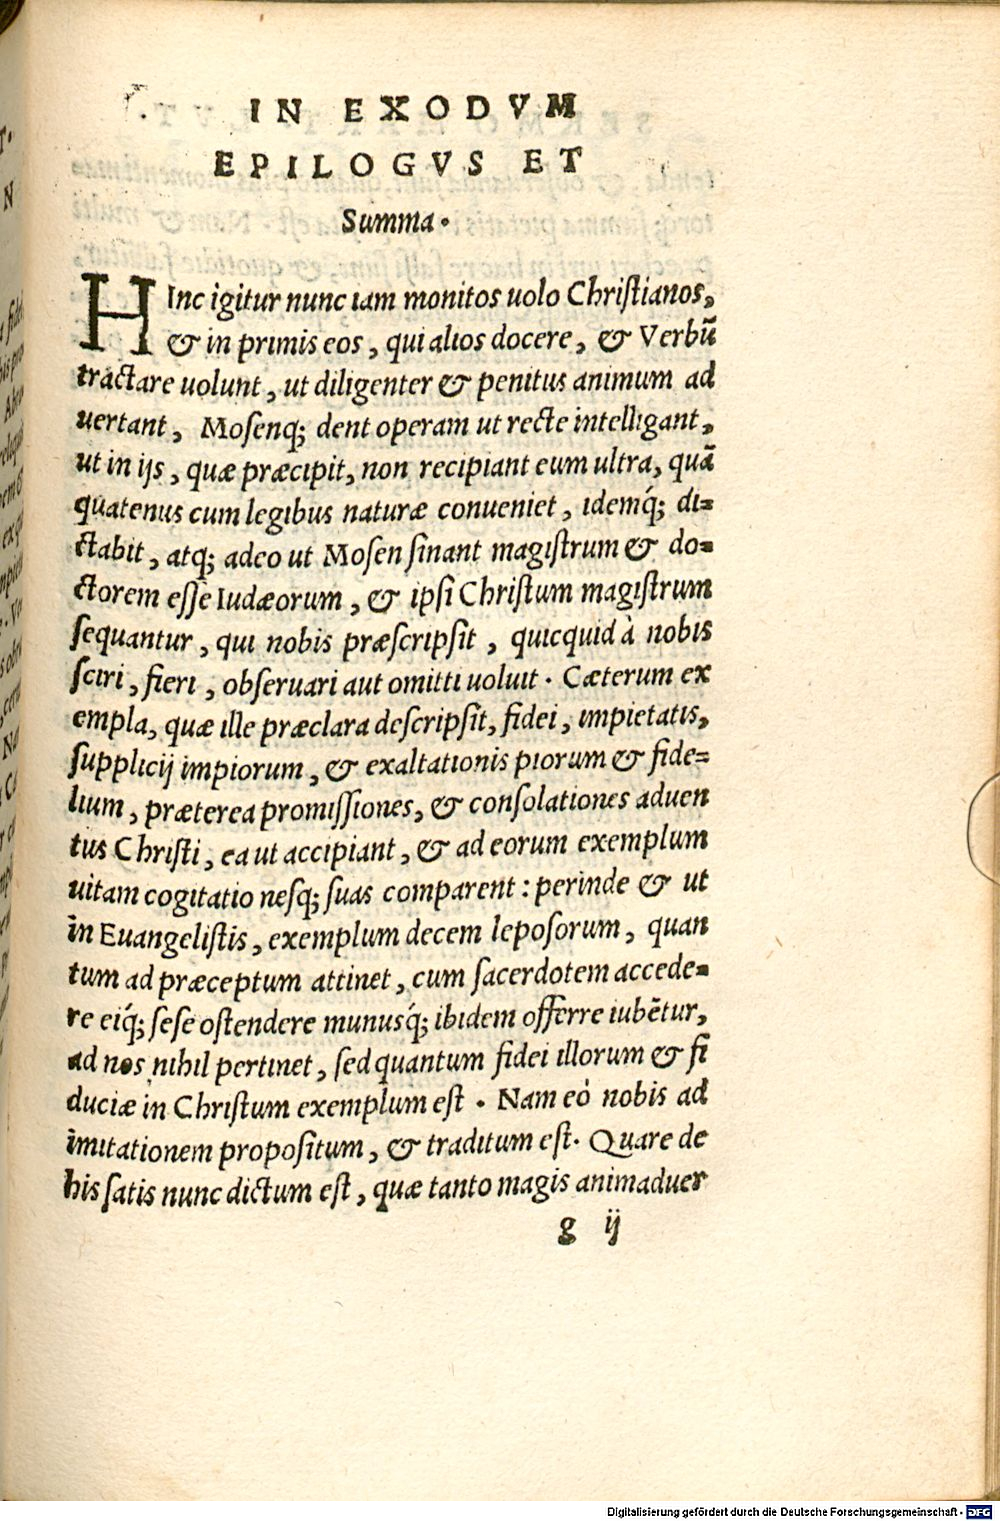 IN EXODVM
EPILOGVS ET
Summa.
HInc igitur nunc iam monitos uolo Christianos,
& in primis eos, qui alios docere, & Verbū
tractare uolunt, ut diligenter & penitus animum ad
uertant, Mosenq; dent operam ut recte intelligant,
ut in ijs, quæ præcipit, non recipiant eum ultra, quā
quatenus cum legibus naturæ conueniet, idemq́; di=
ctabit, atq; adeo ut Mosen sinant magistrum & do=
ctorem esse Iudæorum, & ipsi Christum magistrum
sequantur, qui nobis præscripsit, quicquid à nobis
sciri, fieri, obseruari aut omitti uoluit. Cæterum ex
empla, quæ ille præclara descripsit, fidei, impietatis,
supplicij impiorum, & exaltationis piorum & fide=
lium, præterea promissiones, & consolationes aduen
tus Christi, ea ut accipiant, & ad eorum exemplum
uitam cogitatio nesq; suas comparent: perinde & ut
in Euangelistis, exemplum decem leposorum, quan
tum ad præceptum attinet, cum sacerdotem accede=
re eiq́; sese ostendere munusq́; ibidem offerre iubētur,
ad nos nihil pertinet, sed quantum fidei illorum & fi
duciæ in Christum exemplum est. Nam eò nobis ad
imitationem propositum, & traditum est. Quare de
his satis nunc dictum est, quæ tanto magis animaduer
g ij
Digitalisierung gefördert durch die Deutsche Forschungsgemeinschaft - DFG